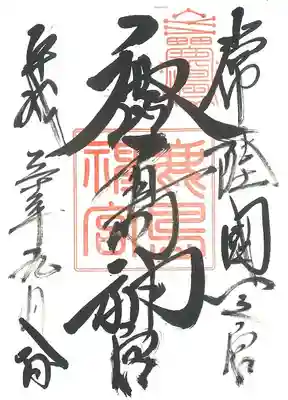 常陸國一之宮
鹿島神宮
鹿島
神宮
平成年九月日